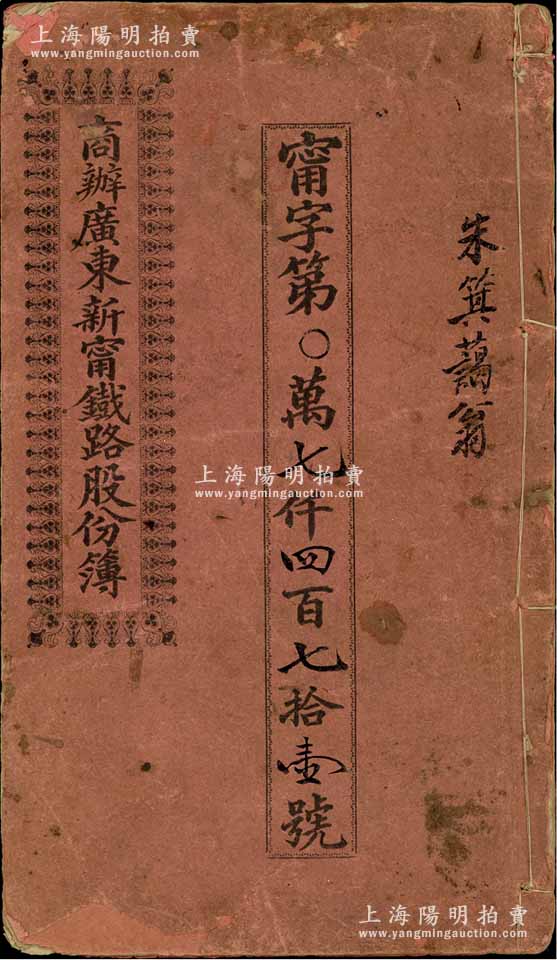 上海陽明拍賣
www.yangmingauction.com
上海陽明拍賣
www.yangmingauction.com
朱箕藹翁
甯字第○萬七仟四百七拾壹號
商辦廣東新甯鐵路股份簿
上海陽明拍賣
www.yangmingauction.com
上海陽明拍賣
www.yangmingauction.com